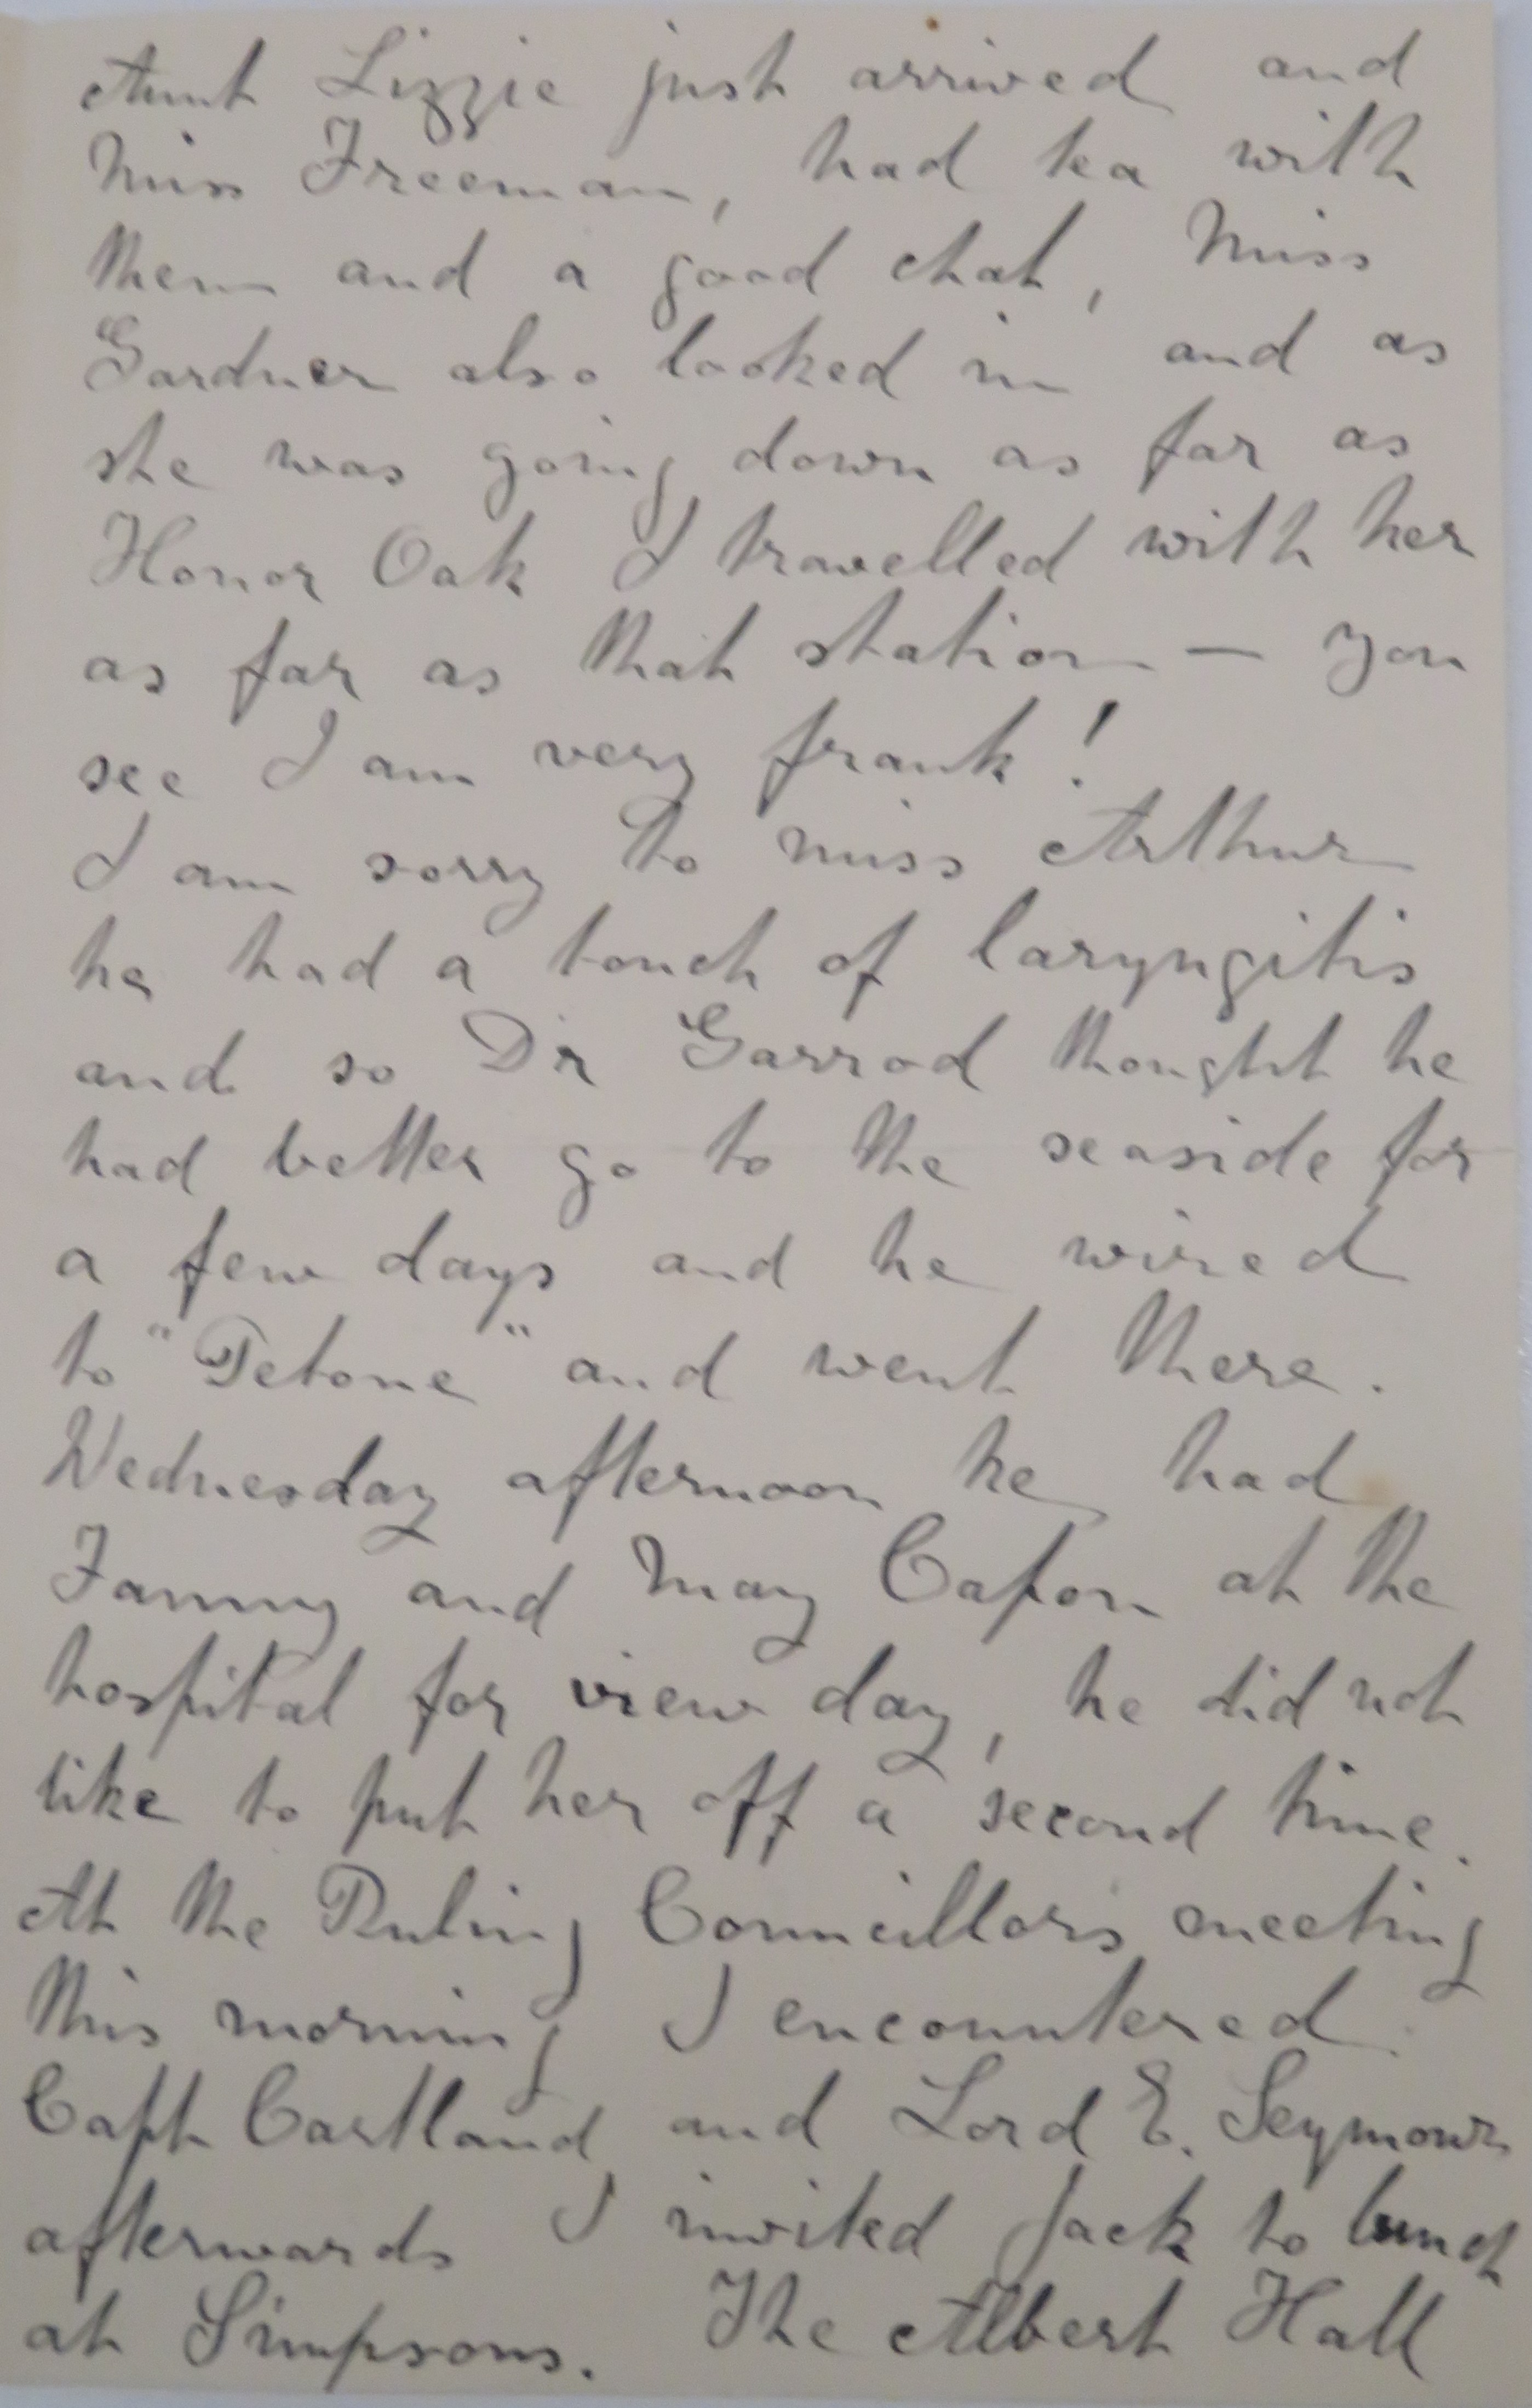 Aunt Lizzie just arrived and
Miss Freeman, had tea with
them and a good chat, Miss
Gardner also looked in and as
she was going down as far as
Honor Oak I travelled with her
as far as that station — you
see I am very frank!
I am sorry to miss Arthur
he had a touch of laryngitis
and so Dr Garrod thought he
had better go to the seaside for
a few days and he wired
to "Petone" and went there.
Wednesday afternoon he had
Fanny and May Capon at the
hospital for view day, he did not
like to put her off a second time.
At the Ruling Councillors meeting
this morning I encountered
Capt Cartland and Lord E. Seymour
afterwards I invited Jack to lunch
at Simpsons. The Albert Hall